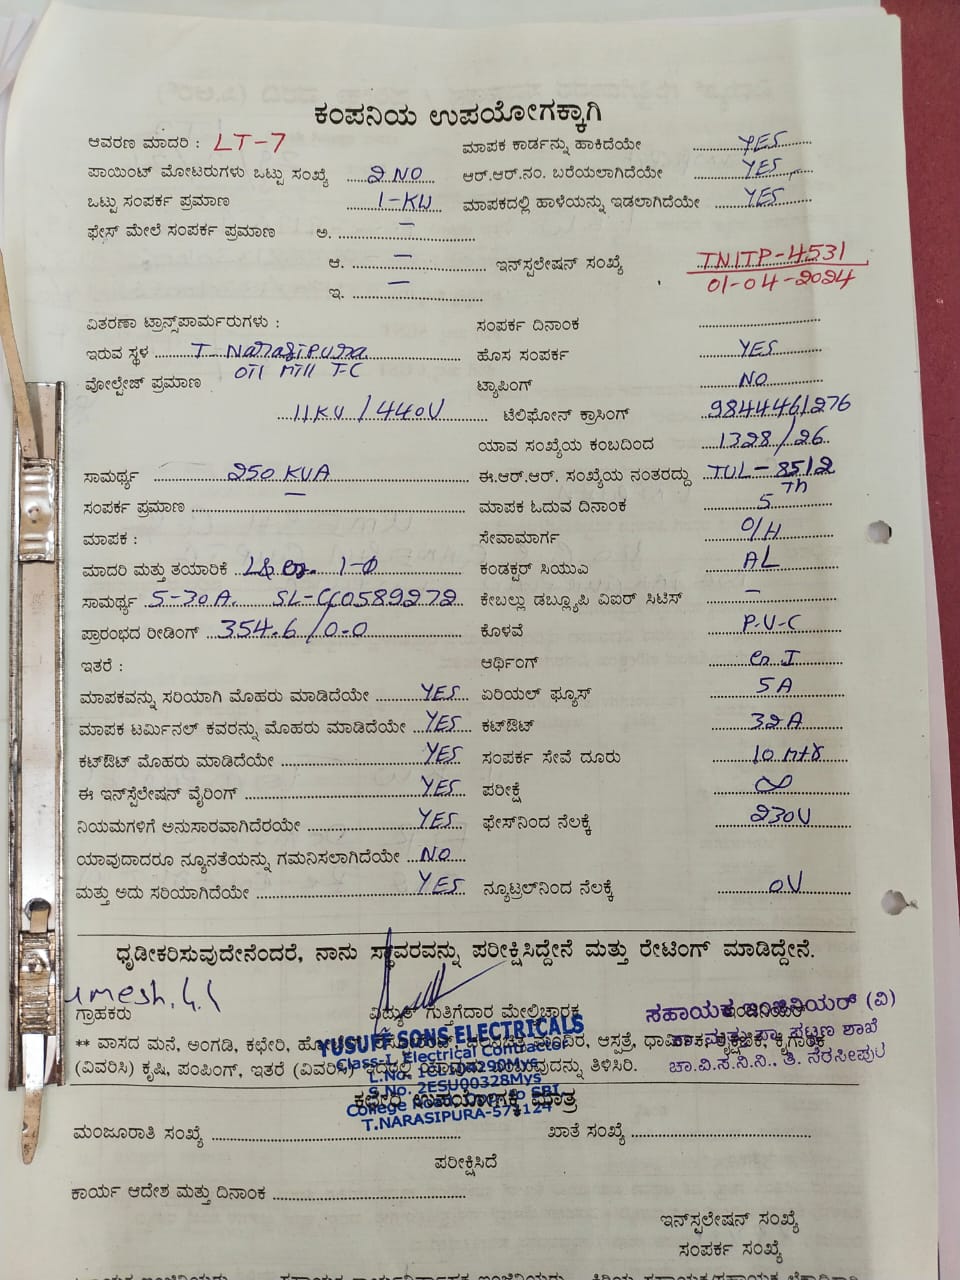 ಕಂಪನಿಯ ಉಪಯೋಗಕ್ಕಾಗಿ
ಆವರಣ ಮಾದರಿ : LT-7 ಮಾಪಕ ಕಾರ್ಡನ್ನು ಹಾಕಿದೆಯೇ YES
ಪಾಯಿಂಟ್ ಮೋಟರುಗಳು ಒಟ್ಟು ಸಂಖ್ಯೆ 2 NO ಆರ್.ಆರ್.ನಂ. ಬರೆಯಲಾಗಿದೆಯೇ YES
ಒಟ್ಟು ಸಂಪರ್ಕ ಪ್ರಮಾಣ 1-KW ಮಾಪಕದಲ್ಲಿ ಹಾಳೆಯನ್ನು ಇಡಲಾಗಿದೆಯೇ YES
ಫೇಸ್ ಮೇಲೆ ಸಂಪರ್ಕ ಪ್ರಮಾಣ ಅ. –
ಆ. – ಇನ್‌ಸ್ಟಲೇಷನ್ ಸಂಖ್ಯೆ TNITP-4531
ಇ. – 01-04-2024
ವಿತರಣಾ ಟ್ರಾನ್ಸ್‌ಪಾರ್ಮರುಗಳು : ಸಂಪರ್ಕ ದಿನಾಂಕ
ಇರುವ ಸ್ಥಳ T. Narasipura ಹೊಸ ಸಂಪರ್ಕ YES
ವೋಲ್ಟೇಜ್ ಪ್ರಮಾಣ ಟ್ಯಾಪಿಂಗ್ NO
11KV / 440V ಟೆಲಿಫೋನ್ ಕ್ರಾಸಿಂಗ್ 9844461276
ಯಾವ ಸಂಖ್ಯೆಯ ಕಂಬದಿಂದ 1328/26
ಸಾಮರ್ಥ್ಯ 250 KVA ಈ.ಆರ್.ಆರ್. ಸಂಖ್ಯೆಯ ನಂತರದ್ದು TUL-8512
ಸಂಪರ್ಕ ಪ್ರಮಾಣ – ಮಾಪಕ ಓದುವ ದಿನಾಂಕ 5th
ಮಾಪಕ : ಸೇವಾಮಾರ್ಗ O/H
ಮಾದರಿ ಮತ್ತು ತಯಾರಿಕೆ 1-Φ ಕಂಡಕ್ಟರ್ ಸಿಯುಎ AL
ಸಾಮರ್ಥ್ಯ 5-30A. ಕೇಬಲ್ಲು ಡಬ್ಲ್ಯೂಪಿ ವಿಐರ್ ಸಿಟಿಸ್ –
ಪ್ರಾರಂಭದ ರೀಡಿಂಗ್ 354.6 / 0-0 ಕೊಳವೆ P.V.C
ಇತರೆ : ಆರ್ಥಿಂಗ್
ಮಾಪಕವನ್ನು ಸರಿಯಾಗಿ ಮೊಹರು ಮಾಡಿದೆಯೇ YES ಏರಿಯಲ್ ಫ್ಯೂಸ್ 5A
ಮಾಪಕ ಟರ್ಮಿನಲ್ ಕವರನ್ನು ಮೊಹರು ಮಾಡಿದೆಯೇ YES ಕಟ್‌ಔಟ್ 32A
ಕಟ್‌ಔಟ್ ಮೊಹರು ಮಾಡಿದೆಯೇ YES ಸಂಪರ್ಕ ಸೇವೆ ದೂರು 10 mtr
ಈ ಇನ್‌ಸ್ಟೆಲೇಷನ್ ವೈರಿಂಗ್ YES ಪರೀಕ್ಷೆ ∞
ನಿಯಮಗಳಿಗೆ ಅನುಸಾರವಾಗಿದೆರಯೇ YES ಫೇಸ್‌ನಿಂದ ನೆಲಕ್ಕೆ 230V
ಯಾವುದಾದರೂ ನ್ಯೂನತೆಯನ್ನು ಗಮನಿಸಲಾಗಿದೆಯೇ NO
ಮತ್ತು ಅದು ಸರಿಯಾಗಿದೆಯೇ YES ನ್ಯೂಟ್ರಲ್‌ನಿಂದ ನೆಲಕ್ಕೆ 0V
ಧೃಡೀಕರಿಸುವುದೇನೆಂದರೆ, ನಾನು ಸ್ಥಾವರವನ್ನು ಪರೀಕ್ಷಿಸಿದ್ದೇನೆ ಮತ್ತು ರೇಟಿಂಗ್ ಮಾಡಿದ್ದೇನೆ.
ಗ್ರಾಹಕರು ವಿದ್ಯುತ್ ಗುತ್ತಿಗೆದಾರ ಮೇಲ್ವಿಚಾರಕ ಸಹಾಯಕ ಇಂಜಿನಿಯರ್ (ವಿ)
ಪಟ್ಟಣ ಶಾಖೆ
ಚಾ.ವಿ.ಸ.ನಿ.ನಿ., ತಿ. ನರಸೀಪುರ
** ವಾಸದ ಮನೆ, ಅಂಗಡಿ, ಕಛೇರಿ, ಆಸ್ಪತ್ರೆ,
(ವಿವರಿಸಿ) ಕೃಷಿ, ಪಂಪಿಂಗ್, ಇತರೆ (ವಿವರಿಸಿ) ತಿಳಿಸಿರಿ.
YUSUFF SONS ELECTRICALS
Class-I, Electrical Contractor
S.No. 2ESU00328Mys
T.NARASIPURA-571124
ಕಛೇರಿ ಉಪಯೋಗಕ್ಕೆ ಮಾತ್ರ
ಮಂಜೂರಾತಿ ಸಂಖ್ಯೆ ಖಾತೆ ಸಂಖ್ಯೆ
ಪರೀಕ್ಷಿಸಿದೆ
ಕಾರ್ಯ ಆದೇಶ ಮತ್ತು ದಿನಾಂಕ
ಇನ್‌ಸ್ಟಲೇಷನ್ ಸಂಖ್ಯೆ
ಸಂಪರ್ಕ ಸಂಖ್ಯೆ